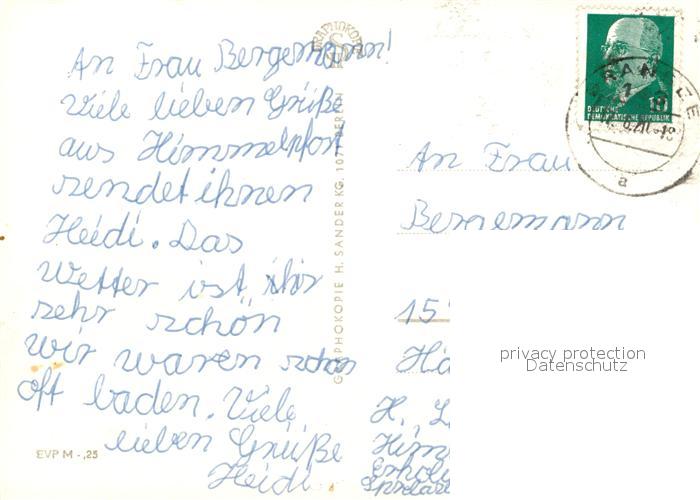 An Frau Bergemann!
Viele lieben Grüße
aus Himmelpfort
sendet ihnen
Heidi. Das
Wetter ist hir
sehr schön
wir waren schon
oft baden. Viele
lieben Grüße
Heidi
EVP M -,25
GRAPHOKOPIE H. SANDER KG, BERLIN
GRAPHOKOPIE
DEUTSCHE
DEMOKRATISCHE REPUBLIK
a
An Frau
Bergemann
15
Ha
H. L
Him
Erhol
privacy protection
Datenschutz